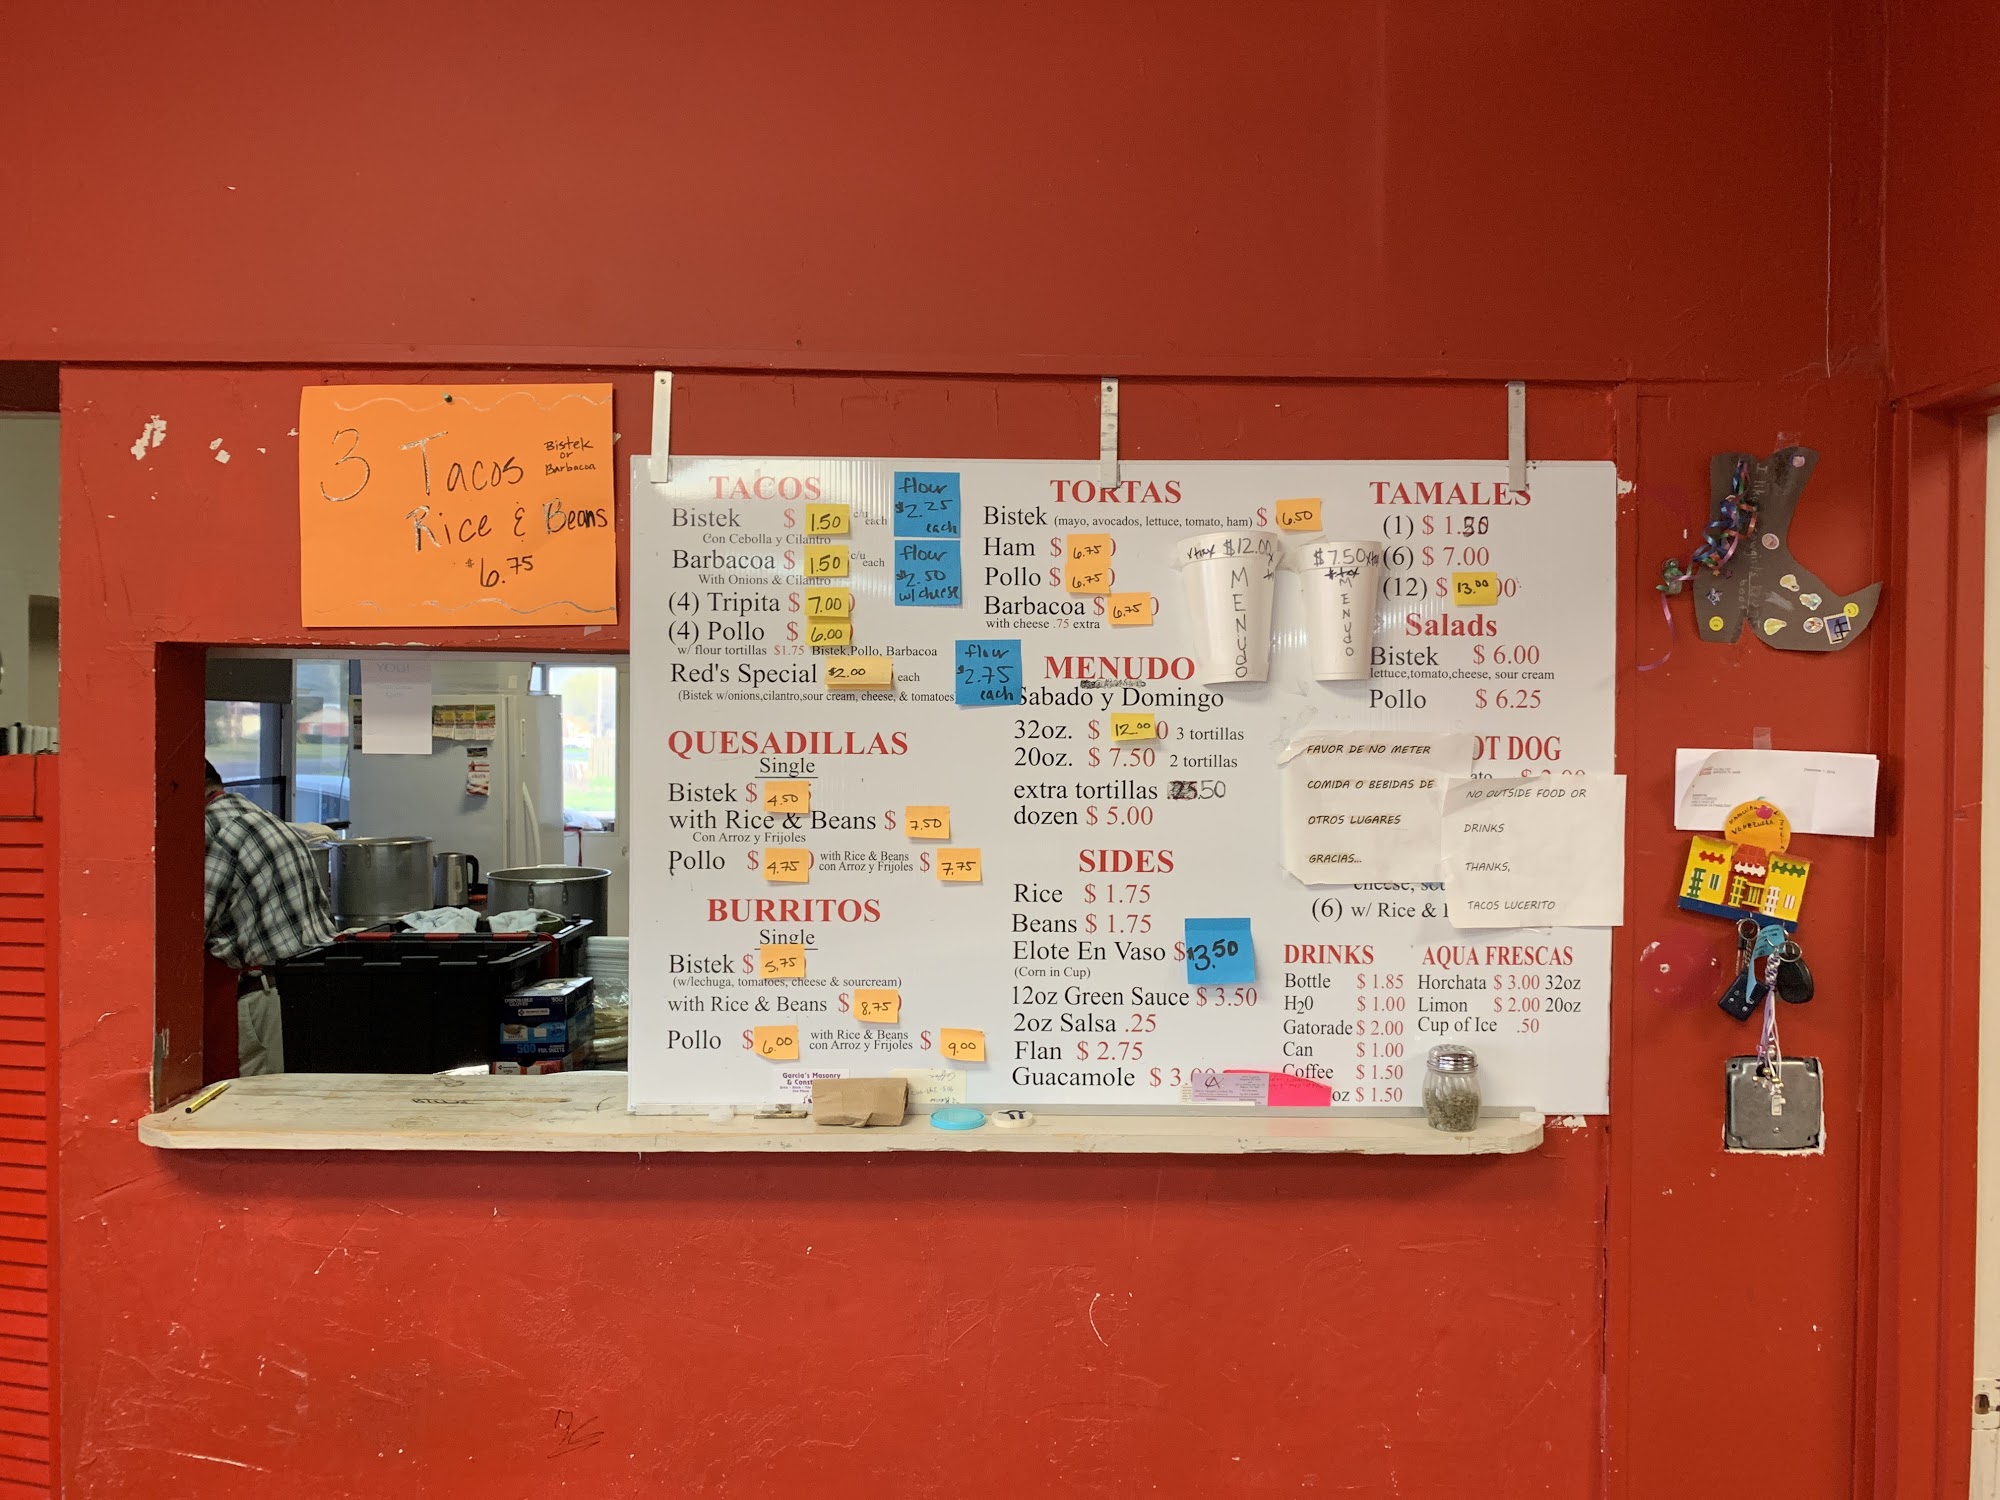 3 Tacos Bistek or Barbacoa
Rice & Beans
$6.75
YOU!
TACOS
Bistek $ 1.50 c/u each
Con Cebolla y Cilantro
Barbacoa $ 1.50 c/u each
With Onions & Cilantro
(4) Tripita $ 7.00
(4) Pollo $ 6.00
w/ flour tortillas $1.75 Bistek,Pollo, Barbacoa
Red's Special $2.00 each
(Bistek w/onions,cilantro,sour cream, cheese, & tomatoes
flour
$2.25
each
flour
$2.50
w/ cheese
flour
$2.75
each
QUESADILLAS
Single
Bistek $ 4.50
with Rice & Beans $ 7.50
Con Arroz y Frijoles
Pollo $ 4.75 with Rice & Beans con Arroz y Frijoles $ 7.75
BURRITOS
Single
Bistek $ 5.75
(w/lechuga, tomatoes, cheese & sourcream)
with Rice & Beans $ 8.75
Pollo $ 6.00 with Rice & Beans con Arroz y Frijoles $ 9.00
TORTAS
Bistek (mayo, avocados, lettuce, tomato, ham) $ 6.50
Ham $ 6.75
Pollo $ 6.75
Barbacoa $ 6.75
with cheese .75 extra
$12.00
MENUDO
$7.50
MENUDO
MENUDO
Sabado y Domingo
32oz. $ 12.00 3 tortillas
20oz. $ 7.50 2 tortillas
extra tortillas .50
dozen $ 5.00
SIDES
Rice $ 1.75
Beans $ 1.75
Elote En Vaso $3.50
(Corn in Cup)
12oz Green Sauce $ 3.50
2oz Salsa .25
Flan $ 2.75
Guacamole $ 3.00
TAMALES
(1) $ 1.50
(6) $ 7.00
(12) $ 13.00
Salads
Bistek $ 6.00
lettuce,tomato,cheese, sour cream
Pollo $ 6.25
OT DOG
FAVOR DE NO METER
COMIDA O BEBIDAS DE
OTROS LUGARES
GRACIAS...
NO OUTSIDE FOOD OR
DRINKS
THANKS,
TACOS LUCERITO
(6) w/ Rice &
DRINKS
Bottle $ 1.85
H20 $ 1.00
Gatorade $ 2.00
Can $ 1.00
Coffee $ 1.50
oz $ 1.50
AQUA FRESCAS
Horchata $ 3.00 32oz
Limon $ 2.00 20oz
Cup of Ice .50
Garcia's Masonry
& Const
500